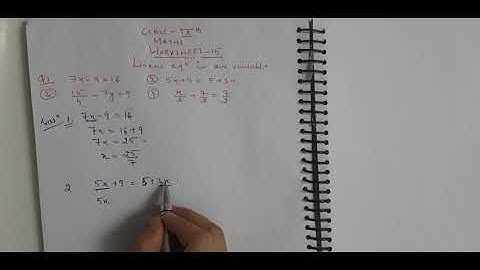 CLASS - IX th
MATHS
WORKSHEET - 15
Linear eqn in one variable
Q1. 7x - 9 = 16 ② 5x + 9 = 5 + 3x
③ 15/4 - 7y = 9 ④ x/2 + 7/3 = 2/3
Soln 1. 7x - 9 = 16
7x = 16 + 9
7x = 25
x = 25/7
2 5x + 9 = 5 + 3x
5x